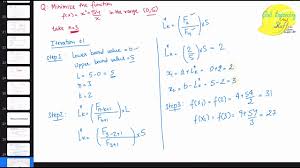 Q. Minimize the function
f(x) = x² + 54/x in the range (0,5)
take n=3
Iteration 01
Step1 Lower bound value = 0
Upper bound value = 5
L = 5-0 = 5
K = 2
Step2
L*K = (Fn-K+1 / Fn+1) × L
L*K = (F3-2+1 / F3+1) × 5
L*K = (F2 / F4) × 5
L*K = (2/5) × 5 = 2
x1 = a + L*K = 0+2 = 2
x2 = b - L*K = 5-2 = 3
Step3 f(x1) = f(2) = 4 + 54/2 = 31
f(x2) = f(3) = 9 + 54/3 = 27